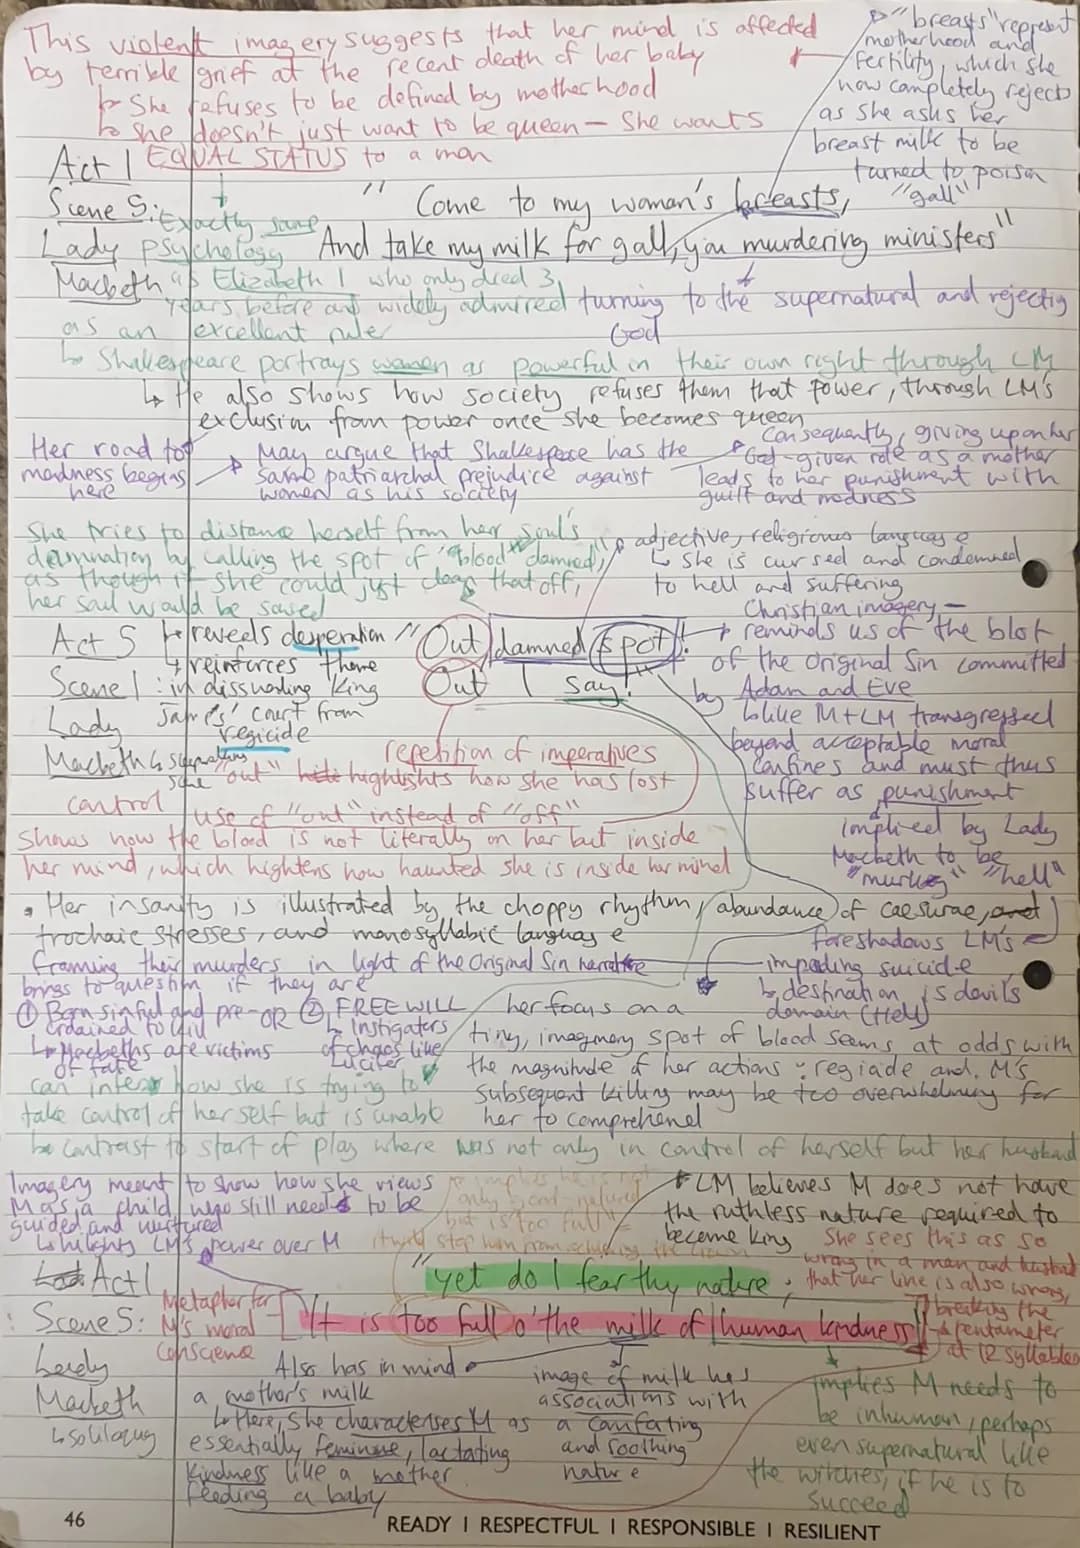 This violent imagery suggests that her mind is affected
by terrible grief at the recent death of her baby
↳ She refuses to be defined by motherhood
↳ She doesn't just want to be queen – she wants
EQUAL STATUS to a man
"breasts" represent
motherhood and
fertility, which she
now completely rejects
as she asks her
breast milk to be
turned to poison
"gall"
Act 1
Scene 5:
Lady
Macbeth
"Come to my woman's breasts,
And take my milk for gall, you murdering ministers"
Exactly same
psychology
as Elizabeth 1 who only died 3
years before and widely admired
as an excellent ruler
turning to the supernatural and rejectig
God
↳ Shakespeare portrays women as powerful in their own right through LM
↳ He also shows how society refuses them that power, through LM's
exclusion from power once she becomes queen
Her road to
madness begins
here
May argue that Shakespeare has the
same patriarchal prejudice against
women as his society
Consequently, giving up on her
God-given role as a mother
leads to her punishment with
guilt and madness
She tries to distance herself from her soul's
damnation by calling the spot of "blood" "damned",
as though if she could just clean that off,
her soul would be saved
adjective, religious language
↳ she is cursed and condemned
to hell and suffering
Act 5
Scene 1:
Lady
Macbeth
↳ reveals desperation
↳ reinforces theme
in dissuading King
James' court from
regicide
↳ sleepwalking
scene
"Out damned spot!
Out I say!"
Christian imagery –
reminds us of the blot
of the Original Sin committed
by Adam and Eve
↳ like M+LM transgressed
beyond acceptable moral
confines and must thus
suffer as punishment
implied by Lady
Macbeth to be
"murky" "hell"
repetition of imperatives
"out" highlights how she has lost
control
use of "out" instead of "off"
shows how the blood is not literally on her but inside
her mind, which hightens how haunted she is inside her mind
• Her insanity is illustrated by the choppy rhythm, abundance of caesurae, and
trochaic stresses, and monosyllabic language
foreshadows LM's
impending suicide
↳ destination is devils
domain (Hell)
Framing their murders in light of the Original Sin narrative
brings to question if they are
① Born sinful and pre-
ordained to kill
↳ Macbeths are victims
of fate
OR ② FREE WILL
↳ Instigators
of chaos like
Lucifer
her focus on a
tiny, imaginary spot of blood seems at odds with
the magnitude of her actions: regicide and M's
subsequent killing may be too overwhelming for
her to comprehend
can infer how she is trying to
take control of herself but is unable
↳ contrast to start of play where was not only in control of herself but her husband
Imagery meant to show how she views
M as a child who still needs to be
guided and nurtured
↳ hilights LM's power over M
implies he is not
only good-natured
but is too full –
it will stop him from achieving the crown
LM believes M does not have
the ruthless nature required to
become king
She sees this as so
wrong in a man and husband
that her line is also wrong,
breaking the
pentameter
at 12 syllables
Act 1
Scene 5:
Lady
Macbeth
↳ soliloquy
Metaphor for
M's moral
conscience
"yet do I fear thy nature;
It is too full o' the milk of human kindness"
Also has in mind
a mother's milk
↳ Here, she characterises M as
essentially feminine, lactating
kindness like a mother
feeding a baby
image of milk has
associations with
a comforting
and soothing
nature
implies M needs to
be inhuman, perhaps
even supernatural like
the witches, if he is to
succeed
46
READY | RESPECTFUL | RESPONSIBLE | RESILIENT